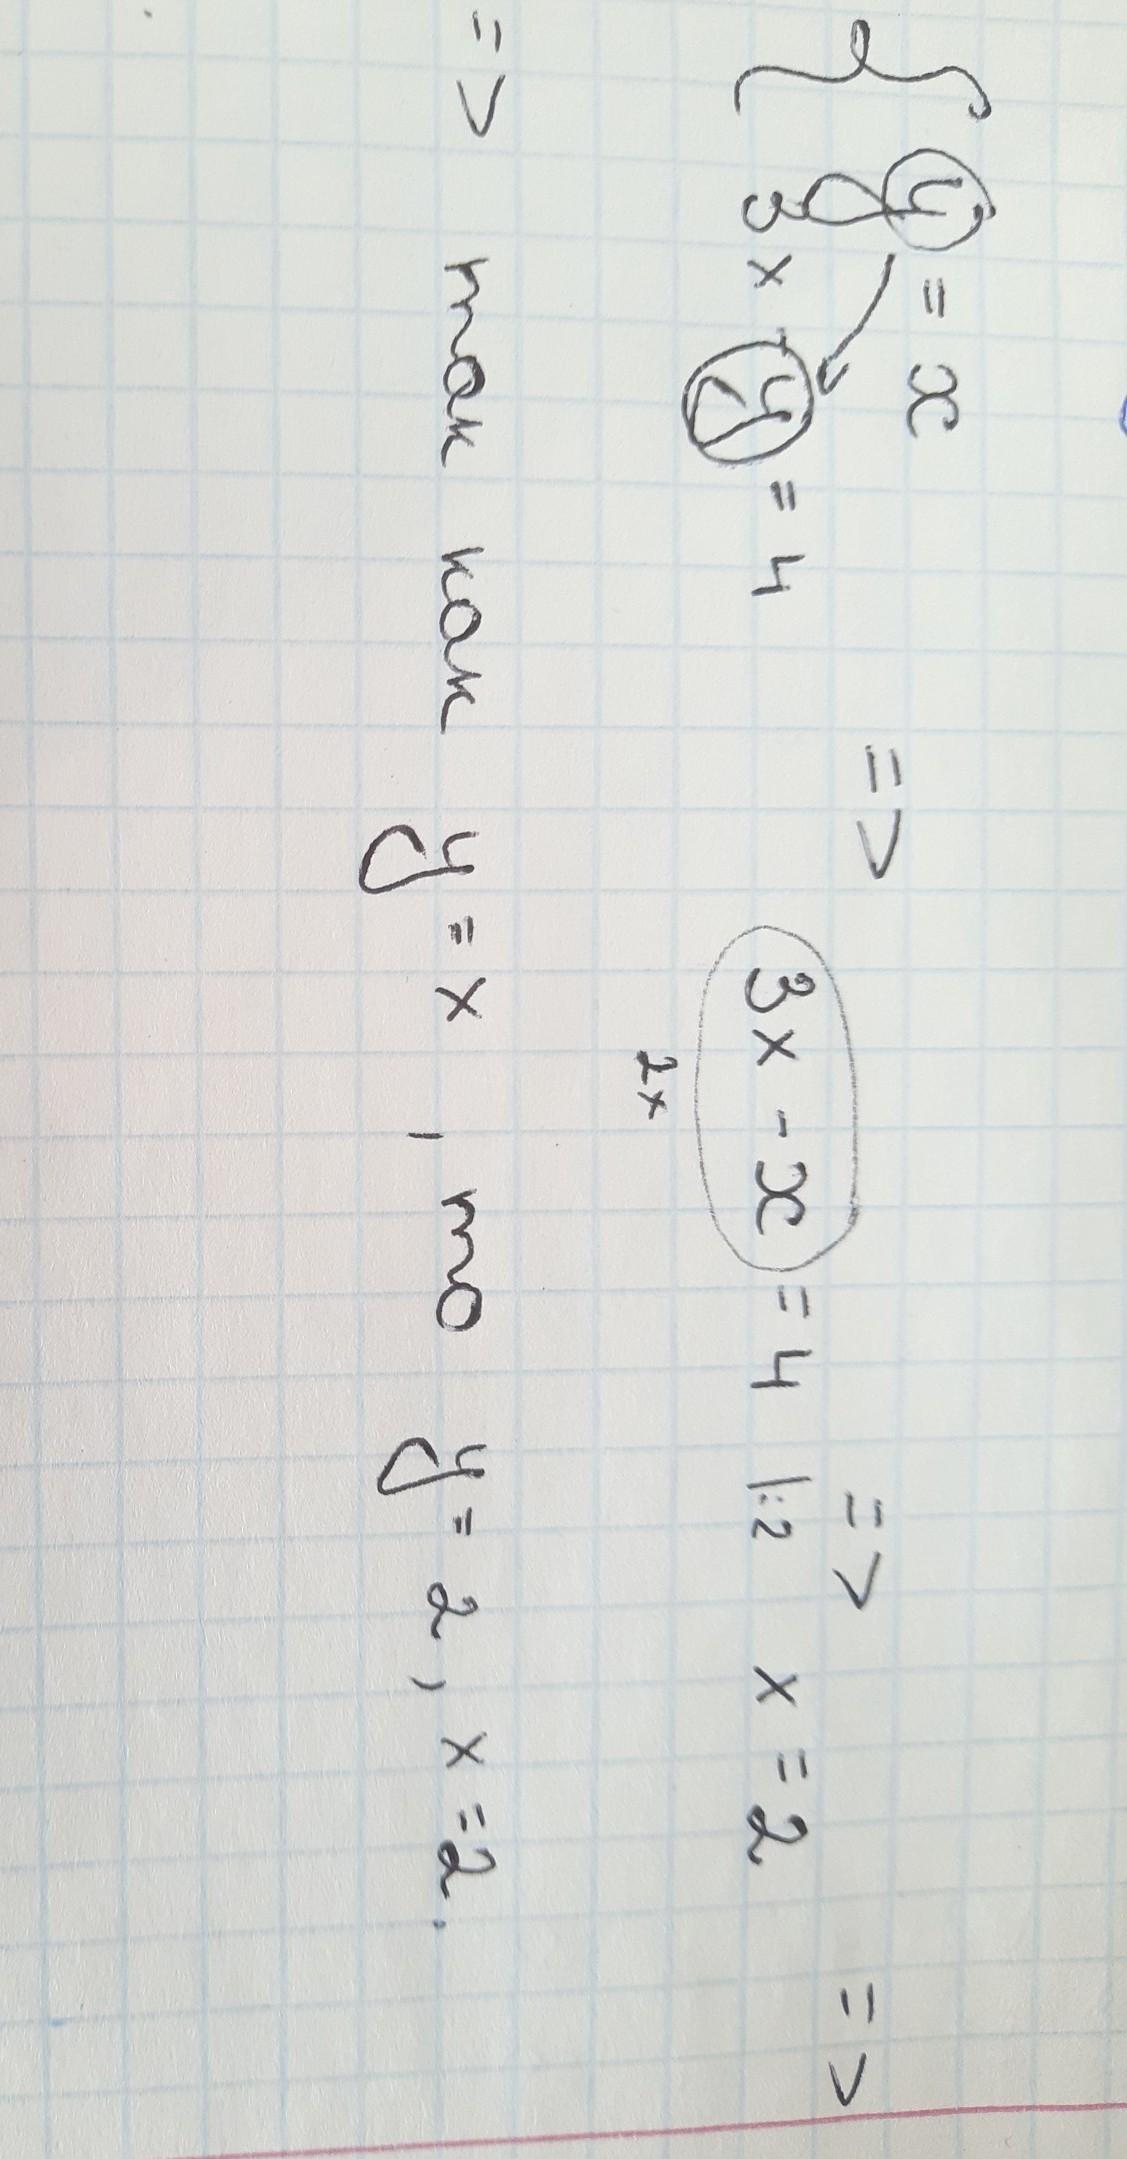 { y = x
3x - y = 4 => 3x - x = 4 |:2 => x = 2 =>
2x
=> так как y = x, то y = 2, x = 2.